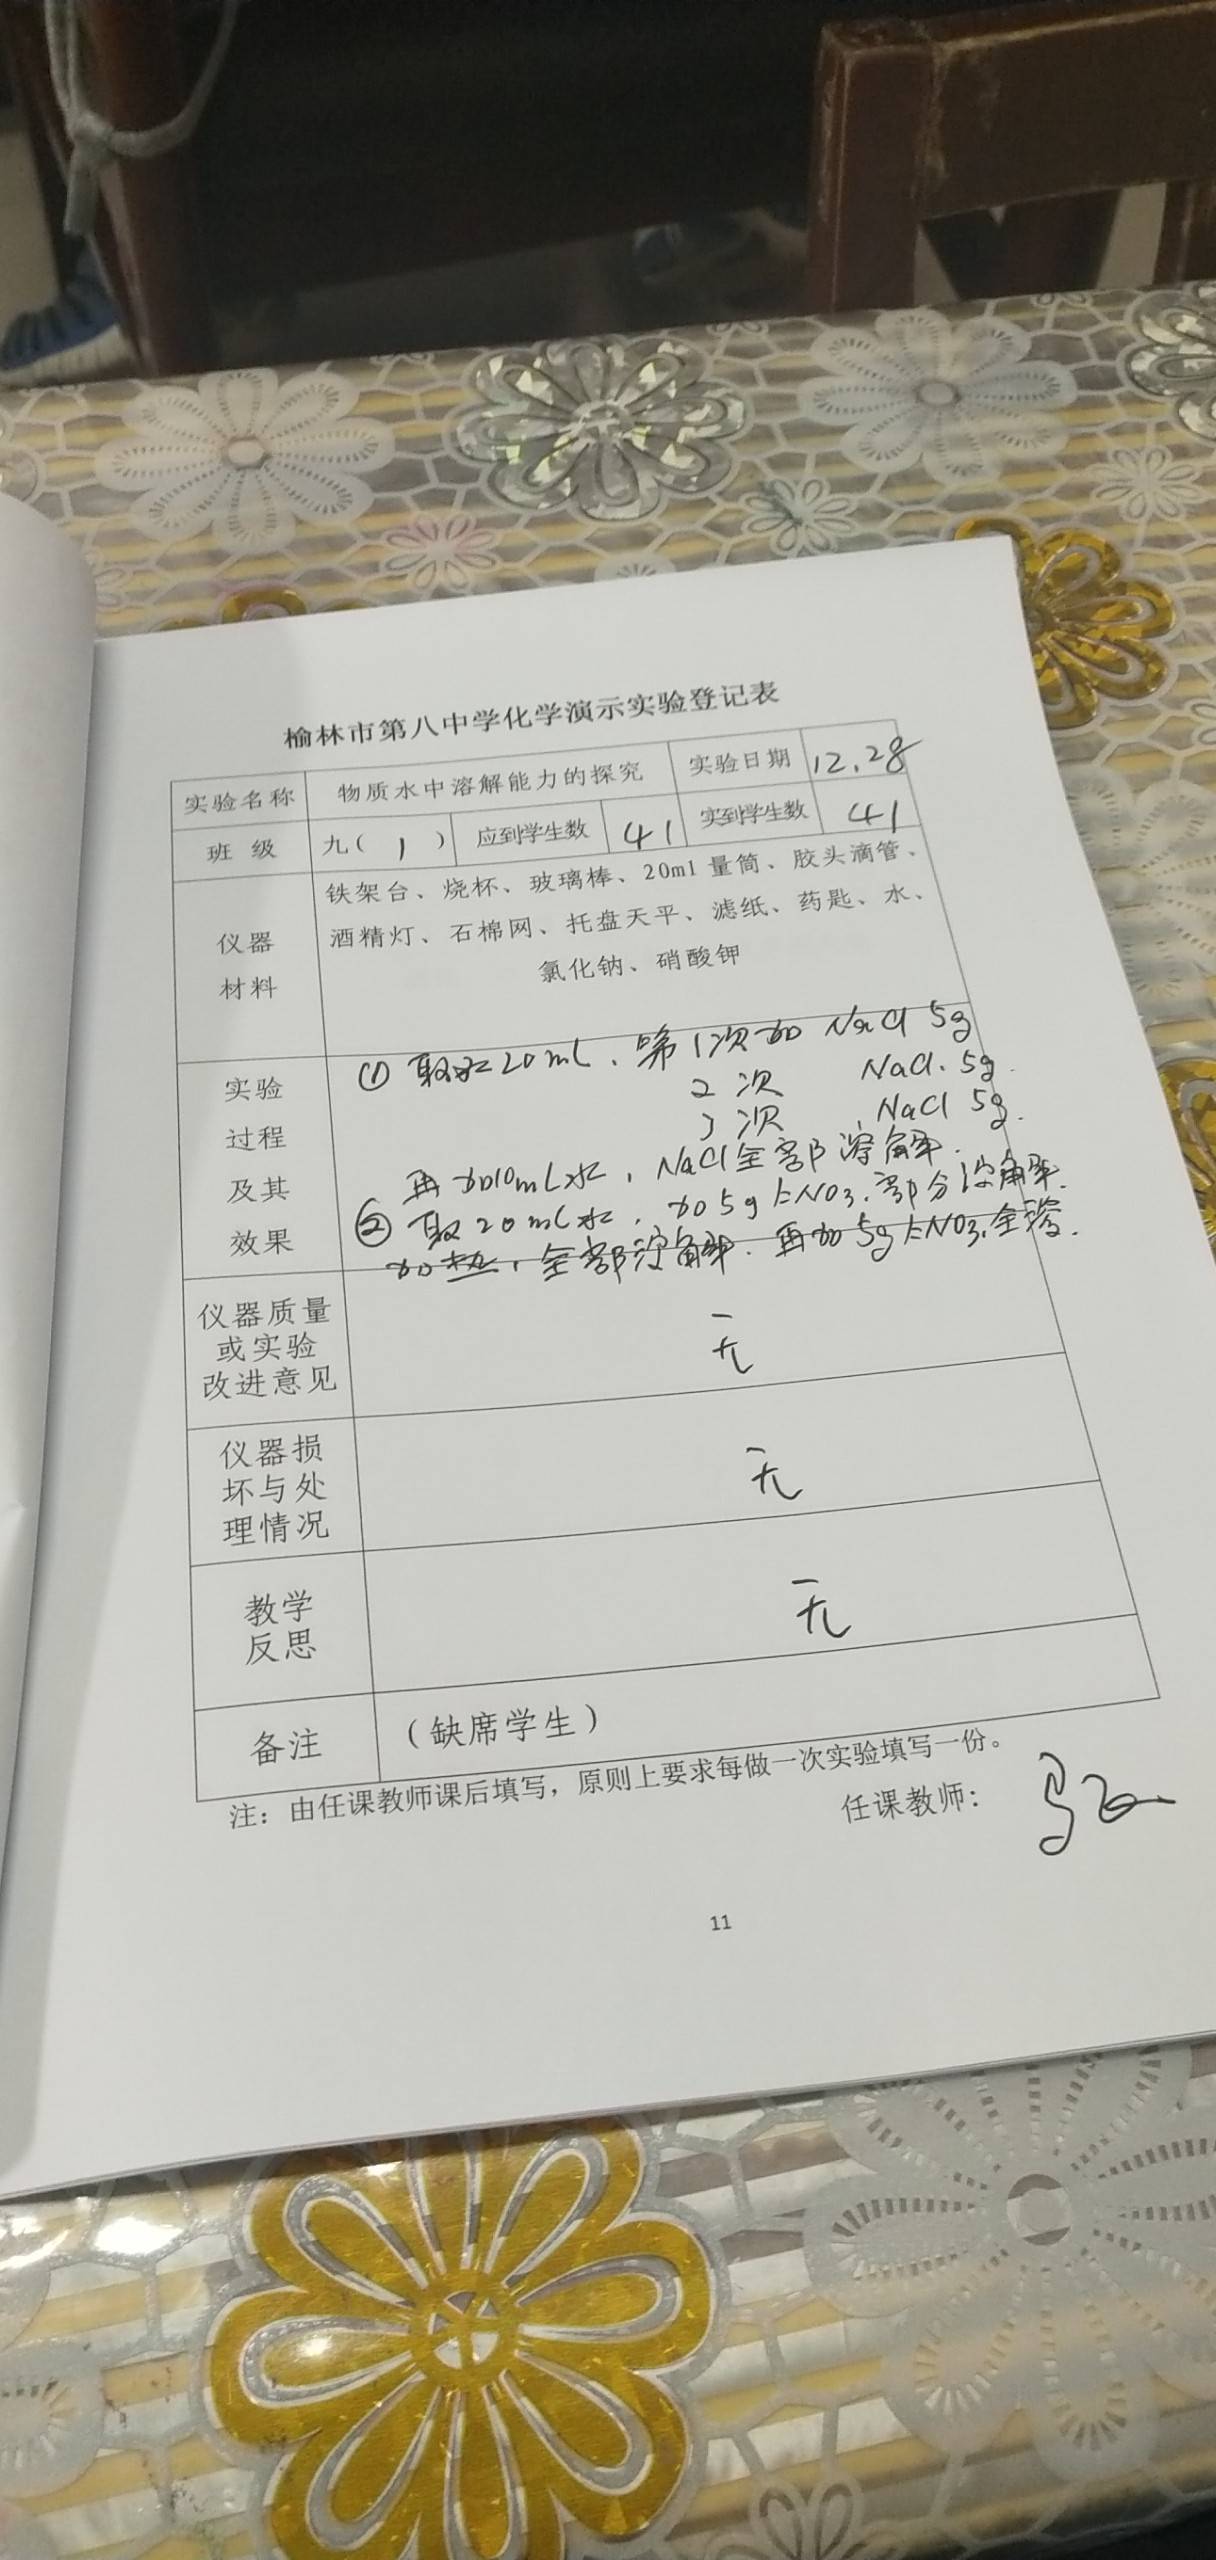 榆林市第八中学化学演示实验登记表
实验名称 物质水中溶解能力的探究 实验日期 12.28
班 级 九( 1 ) 应到学生数 41 实到学生数 41
仪器
材料
铁架台、烧杯、玻璃棒、20ml 量筒、胶头滴管、
酒精灯、石棉网、托盘天平、滤纸、药匙、水、
氯化钠、硝酸钾
实验
过程
及其
效果
① 取水20mL、第1次加 NaCl 5g
2次 NaCl. 5g.
3次 NaCl 5g.
再加10mL水,NaCl全部溶解.
② 取20mL水,加5g KNO3.部分溶解.
加热,全部溶解.再加5gKNO3.全溶.
仪器质量
或实验
改进意见
无
仪器损
坏与处
理情况
无
教学
反思
无
备注 (缺席学生)
注:由任课教师课后填写,原则上要求每做一次实验填写一份。
任课教师:
11